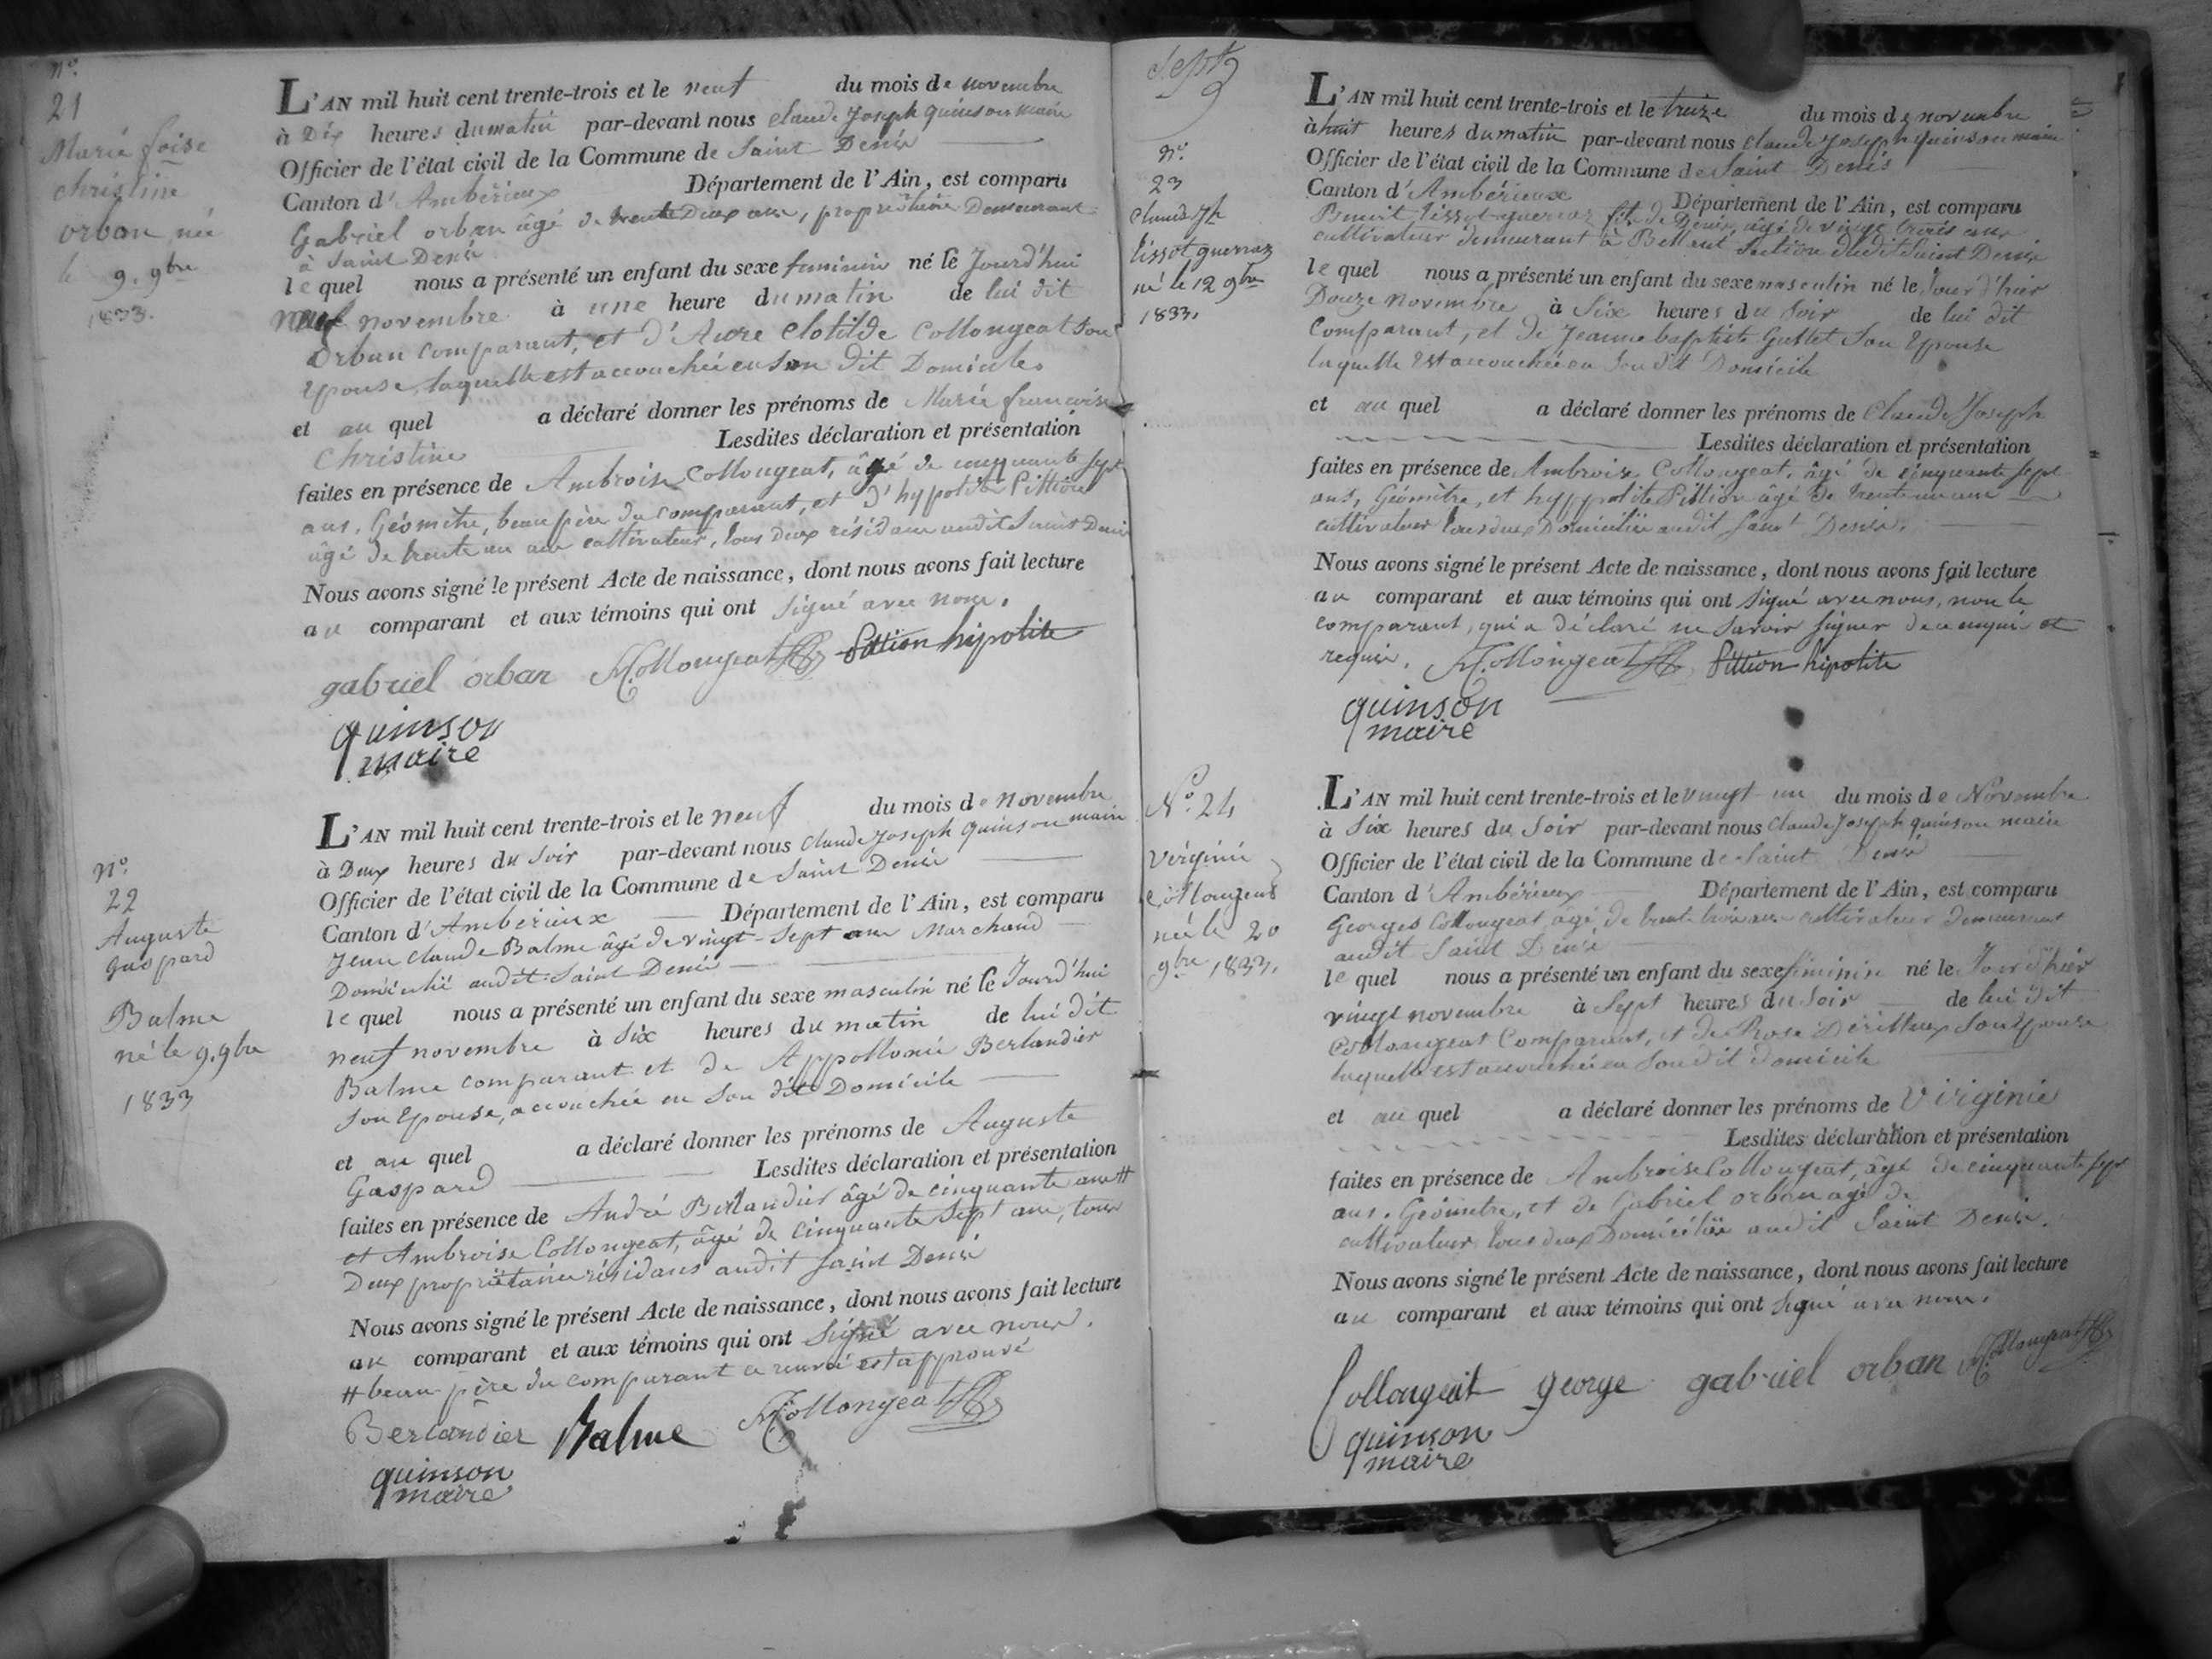 n°.
21
Marie foise
christine
orban née
le 9. 9bre
1833.
L'AN mil huit cent trente-trois et le neuf du mois de novembre
à Dix heures du matin par-devant nous claude Joseph quinson maire
Officier de l'état civil de la Commune de Saint Denis
Canton d'Ambérieux Département de l'Ain, est comparu
Gabriel orban âgé de trente Deux ans, propriétaire Demeurant
à Saint Denis
lequel nous a présenté un enfant du sexe feminin né le Jourd'hui
neuf novembre à une heure du matin de lui dit
Orban comparant, et d'Aure Clotilde Collongeat son
Epouse, laquelle est accouchée en son dit Domicile.
et au quel a déclaré donner les prénoms de Marie francoise
Christine Lesdites déclaration et présentation
faites en présence de Ambroise Collongeat, âgé de cinquante sept
ans, Géomètre, beau père du comparant, et d'hypolite Pittion
âgé de trente un ans cultivateur, tous deux résidans audit Saint Denis
Nous avons signé le présent Acte de naissance, dont nous avons fait lecture
au comparant et aux témoins qui ont signé avec nous.
gabriel orban Collongeat pittion hipolite
quinson
maire
n°.
22
Auguste
Gaspard
Balme
né le 9. 9bre
1833
L'AN mil huit cent trente-trois et le neuf du mois de novembre
à Deux heures du Soir par-devant nous Claude Joseph quinson maire
Officier de l'état civil de la Commune de Saint Denis
Canton d'Ambérieux Département de l'Ain, est comparu
Jean Claude Balme âgé de vingt-sept ans Marchand
Domicilié audit Saint Denis
lequel nous a présenté un enfant du sexe masculin né le Jourd'hui
neuf novembre à Six heures du matin de lui dit
Balme comparant et de Appollonie Berlandier
son Epouse, accouchée en son dit Domicile
et au quel a déclaré donner les prénoms de Auguste
Gaspard Lesdites déclaration et présentation
faites en présence de André Berlandier âgé de cinquante ans #
et Ambroise Collongeat, âgé de cinquante sept ans, tous
Deux propriétaires résidans audit Saint Denis
Nous avons signé le présent Acte de naissance, dont nous avons fait lecture
au comparant et aux témoins qui ont signé avec nous.
# beau-père du comparant ce renvoi est approuvé
Berlandier Balme Collongeat
quinson
maire
Sept
n°.
23
Claude Jh
tissot guerraz
né le 12 9bre
1833.
L'AN mil huit cent trente-trois et le treize du mois de novembre
à huit heures du matin par-devant nous Claude Joseph quinson maire
Officier de l'état civil de la Commune de Saint Denis
Canton d'Ambérieux Département de l'Ain, est comparu
Benoit tissot-guerraz fils de Denis, âgé de vingt trois ans
cultivateur demeurant à section dudit Saint Denis
lequel nous a présenté un enfant du sexe masculin né le Jour d'hier
Douze novembre à Six heures du Soir de lui dit
Comparant, et de Jeanne baptiste Son Epouse
laquelle est accouchée en son dit Domicile
et au quel a déclaré donner les prénoms de Claude Joseph
Lesdites déclaration et présentation
faites en présence de Ambroise Collongeat, âgé de cinquante sept
ans, Géomètre, et hyppolite Pittion âgé de trente un ans
cultivateur tous deux Domiciliés audit Saint Denis.
Nous avons signé le présent Acte de naissance, dont nous avons fait lecture
au comparant et aux témoins qui ont signé avec nous, non le
comparant, qui a déclaré ne savoir signer de ce enquis et
requis. Collongeat pittion hipolite
quinson
maire
N°. 24
virginie
Collongeat
née le 20
9bre 1833.
L'AN mil huit cent trente-trois et le vingt un du mois de Novembre
à Six heures du Soir par-devant nous Claude Joseph quinson maire
Officier de l'état civil de la Commune de Saint Denis
Canton d'Ambérieux Département de l'Ain, est comparu
Georges Collongeat âgé de trente trois ans cultivateur demeurant
audit Saint Denis
lequel nous a présenté un enfant du sexe féminin né le Jour d'hier
vingt novembre à Sept heures du Soir de lui dit
Collongeat Comparant, et de Rose Son Epouse
laquelle est accouchée en son dit domicile
et au quel a déclaré donner les prénoms de Virginie
Lesdites déclaration et présentation
faites en présence de Ambroise Collongeat, âgé de cinquante sept
ans. Géomètre, et de Gabriel orban âgé de
cultivateur tous deux Domiciliés audit Saint Denis.
Nous avons signé le présent Acte de naissance, dont nous avons fait lecture
au comparant et aux témoins qui ont signé avec nous.
Collongeat george gabriel orban Collongeat
quinson
maire